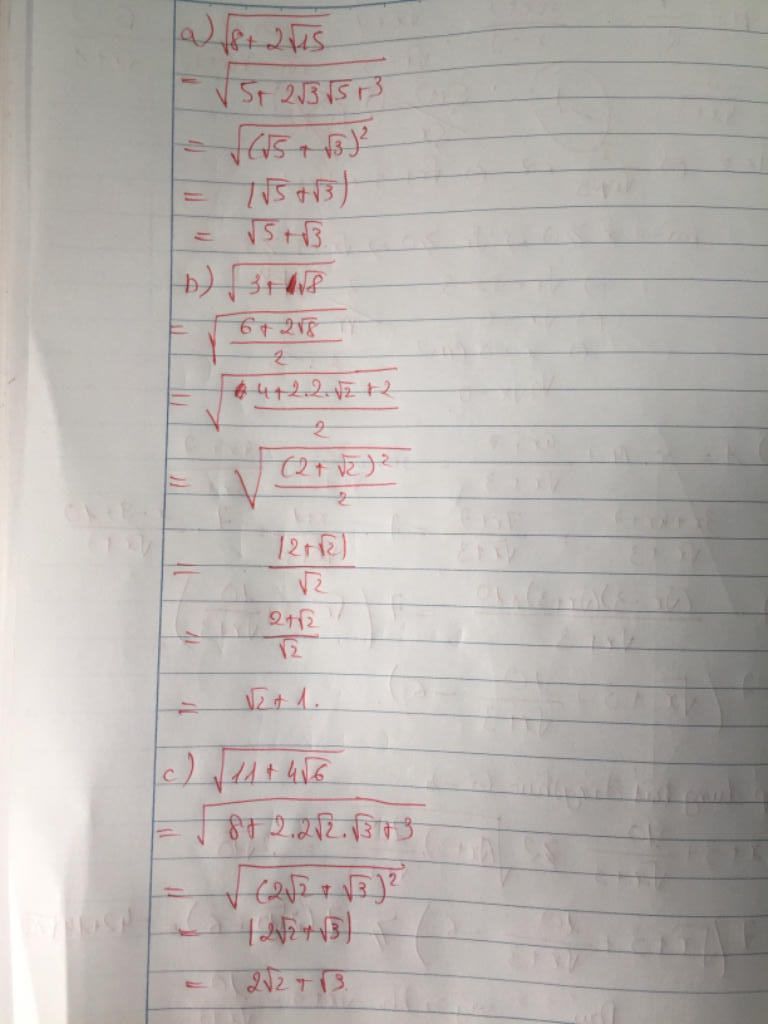 a) √(8 + 2√15)
= √(5 + 2√3√5 + 3)
= √((√5 + √3)²)
= |√5 + √3|
= √5 + √3
b) √(3 + √8)
= √((6 + 2√8)/2)
= √((4 + 2.2.√2 + 2)/2)
= √((2 + √2)²/2)
= |2 + √2|/√2
= (2 + √2)/√2
= √2 + 1.
c) √(11 + 4√6)
= √(8 + 2.2√2.√3 + 3)
= √((2√2 + √3)²)
= |2√2 + √3|
= 2√2 + √3.